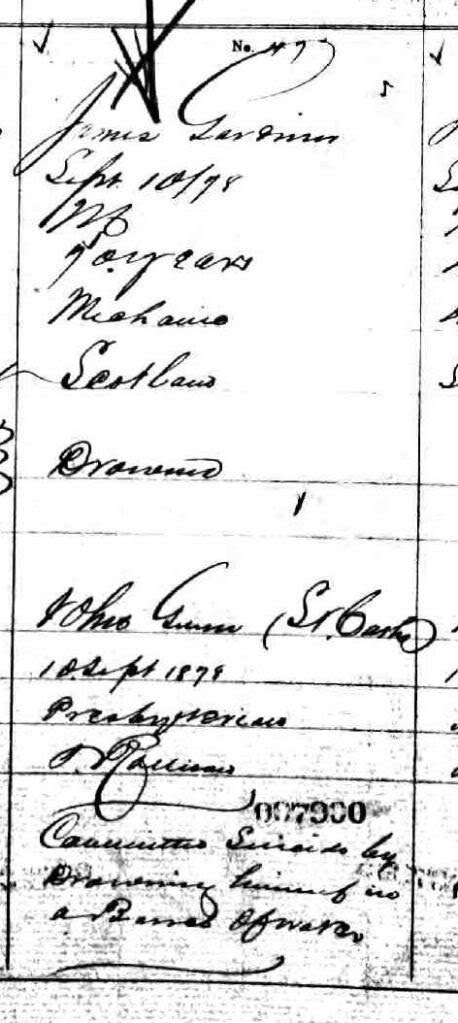 No. 47
James Gardiner
Sept. 10/78
M
70 years
Mechanic
Scotland
Drowned
1
John Gunn (St. Caths)
10 Sept 1878
Presbyterian
007990
Committed Suicide by
Drowning himself in
a Barrel of water